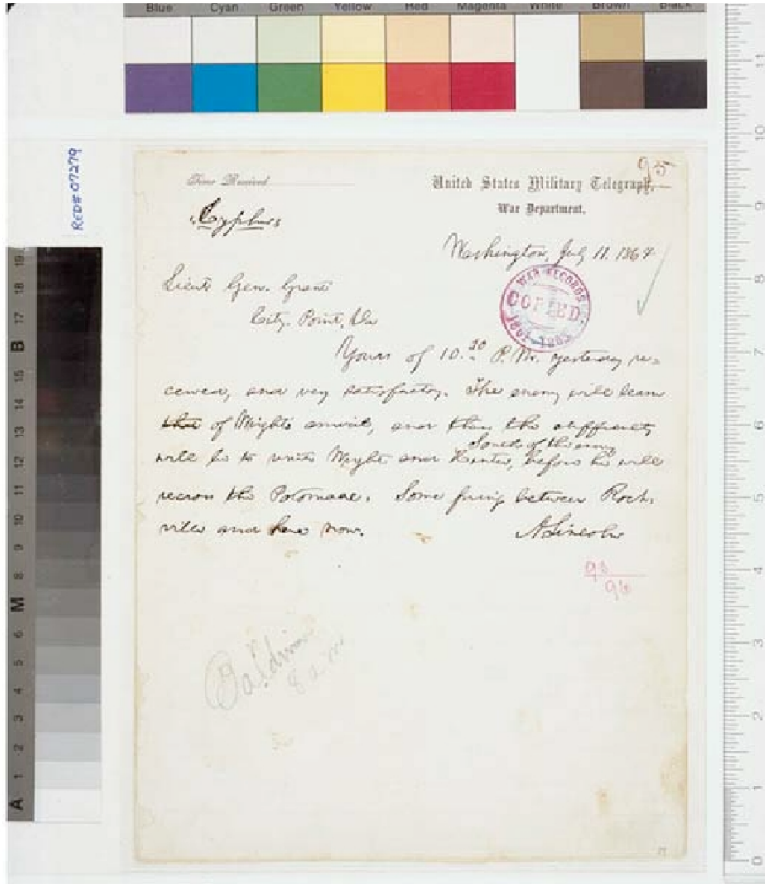 Blue Cyan Green Yellow Red Magenta White Brown Black
RED# 07279
95
Time Received
United States Military Telegraph,
War Department.
"Cypher"
Washington, July 11. 1864
Lieut. Gen. Grant
City-Point, Va
WAR RECORDS
COPIED.
1861-1865
Yours of 10.30 P.M. yesterday re-
ceived, and very satisfactory. The enemy will learn
that of Wright's arrival, and then the difficulty
will be to unite Wright and Hunter, South of the enemy before he will
recross the Potomac. Some firing between Rock-
ville and here now.
A. Lincoln
96
Baldwin
8 a.m.
A 1 2 3 4 5 6 M 8 9 10 11 12 13 B 14 15 16 17 18 19
0 1 2 3 4 5 6 7 8 9 10 11